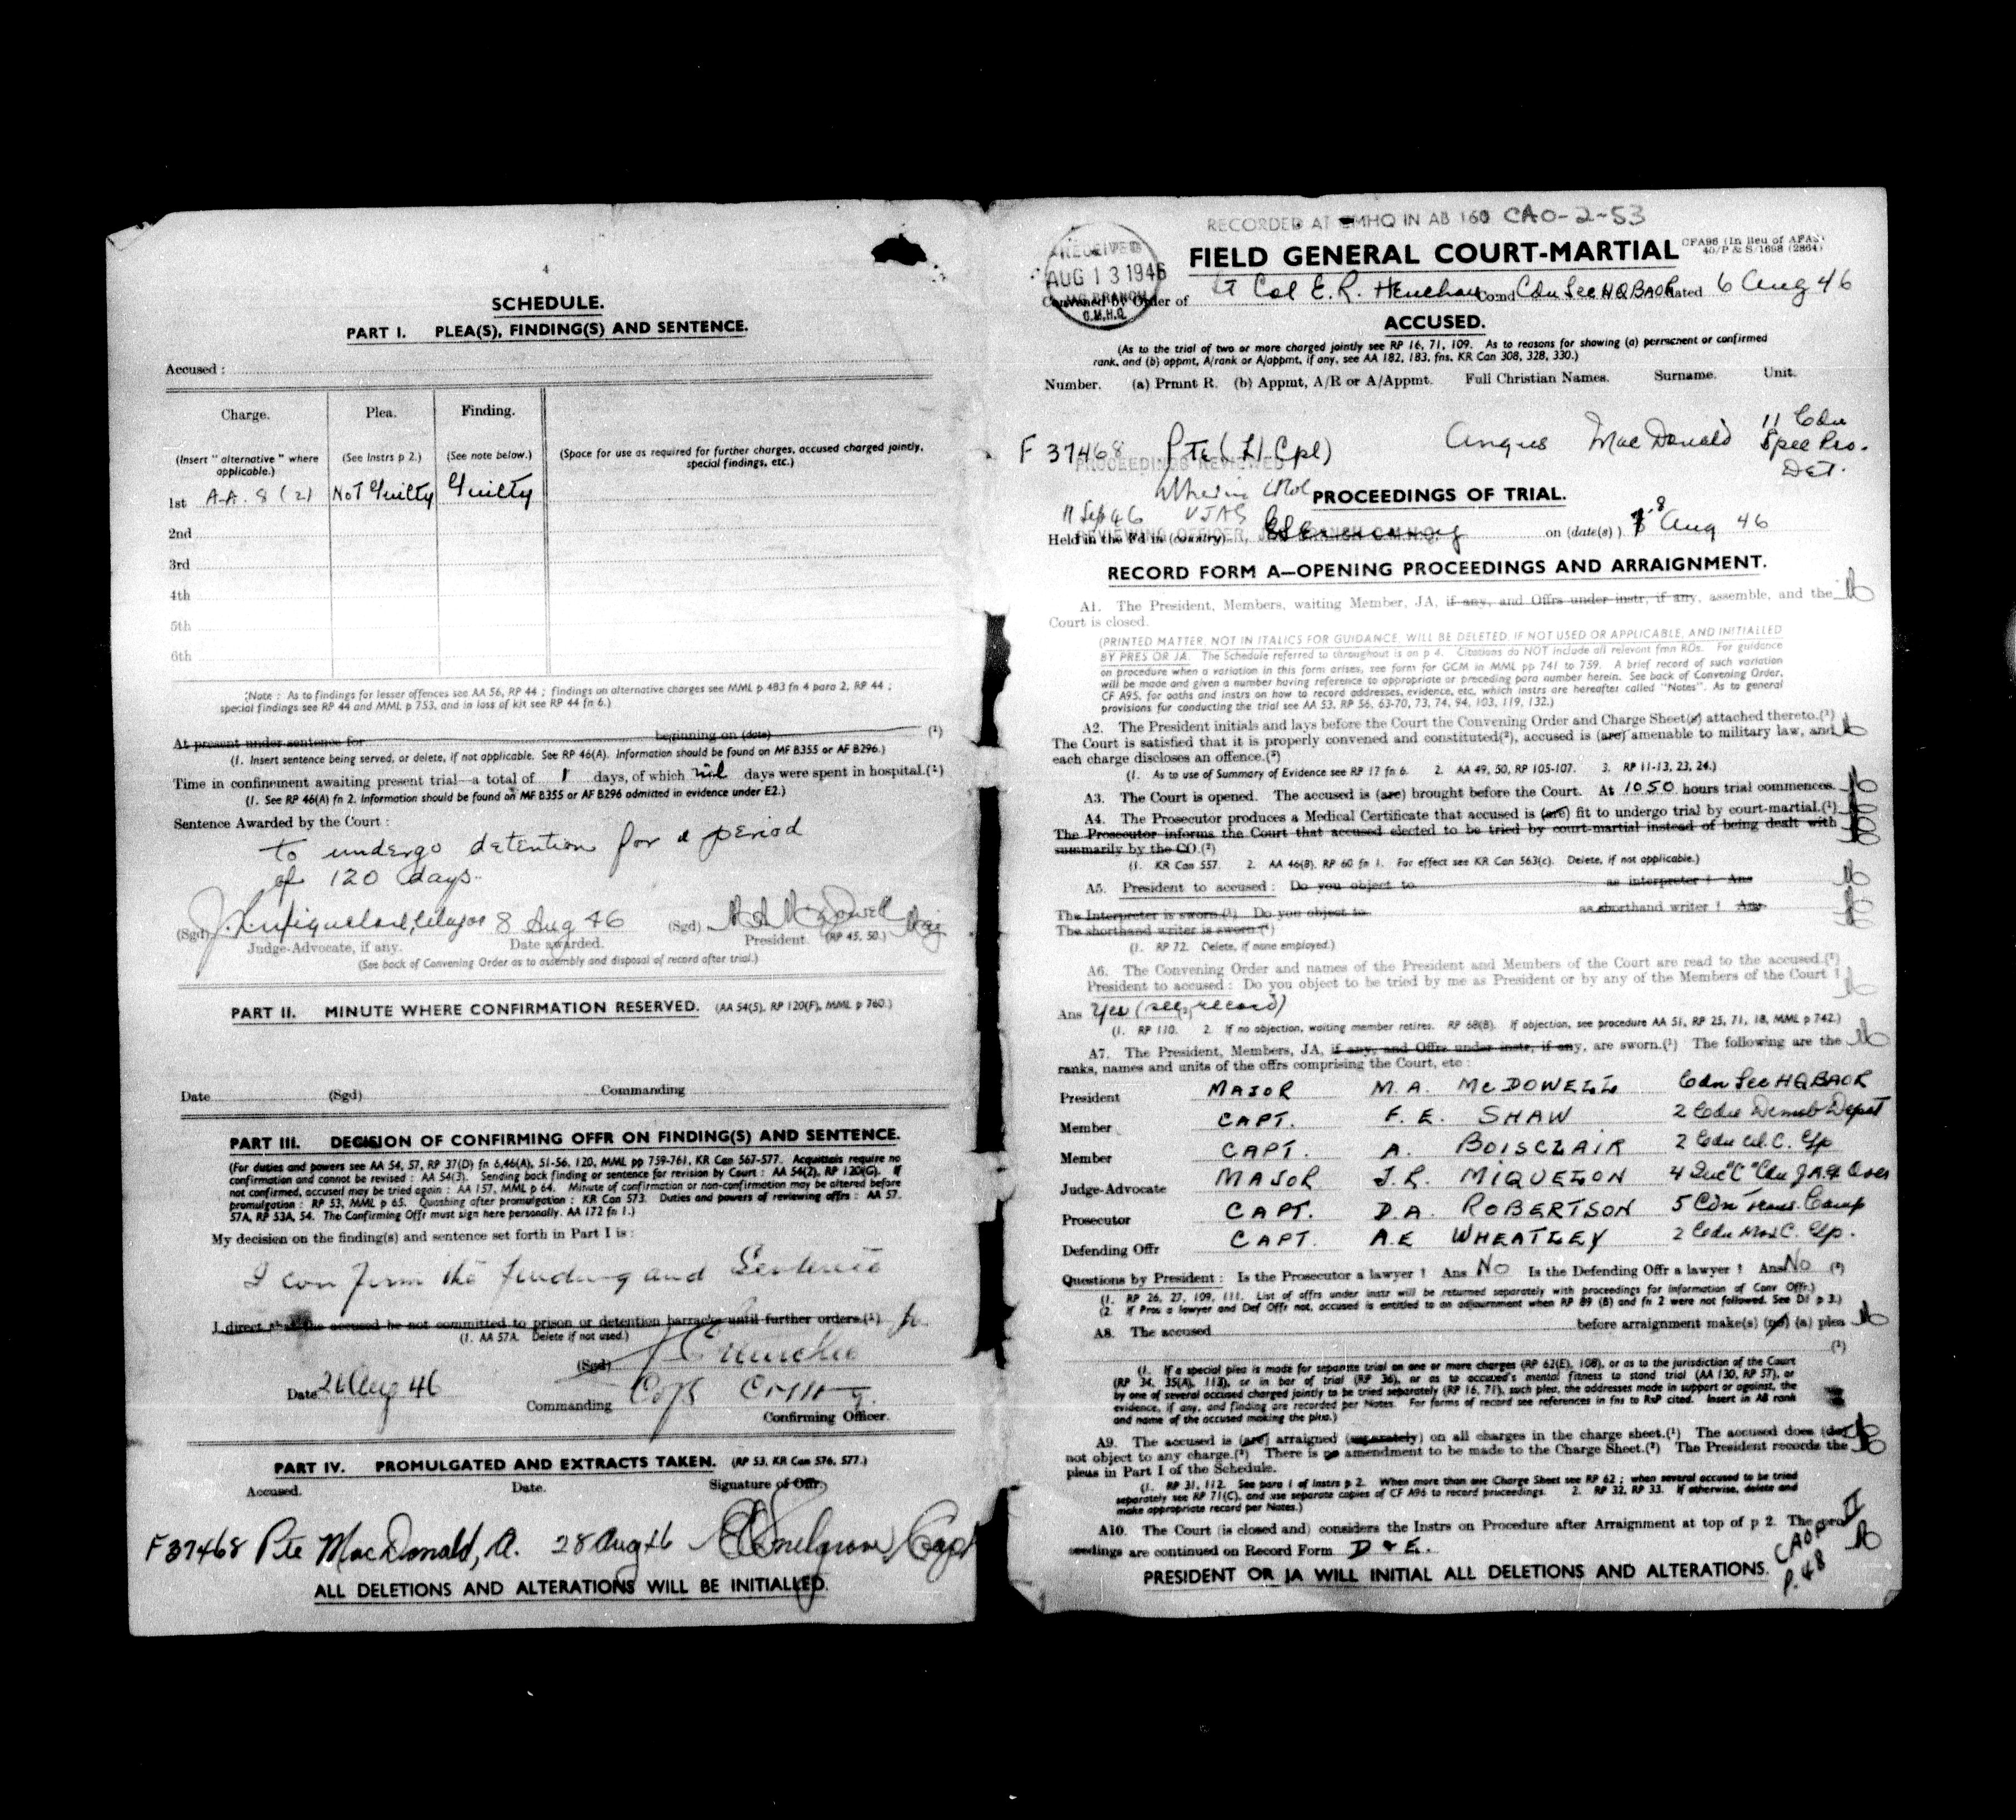 4
SCHEDULE.
PART I. PLEA(S), FINDING(S) AND SENTENCE.
Accused :
Charge. Plea. Finding.
(Insert " alternative " where applicable.) (See Instrs p 2.) (See note below.) (Space for use as required for further charges, accused charged jointly, special findings, etc.)
1st A.A. 8 (2) Not Guilty Guilty
2nd
3rd
4th
5th
6th
(Note : As to findings for lesser offences see AA 56, RP 44 ; findings on alternative charges see MML p 483 fn 4 para 2, RP 44 ;
special findings see RP 44 and MML p 753, and in loss of kit see RP 44 fn 6.)
At present under sentence for beginning on (date) (1)
(1. Insert sentence being served, or delete, if not applicable. See RP 46(A). Information should be found on MF B355 or AF B296.)
Time in confinement awaiting present trial—a total of 1 days, of which nil days were spent in hospital.(1)
(1. See RP 46(A) fn 2. Information should be found on MF B355 or AF B296 admitted in evidence under E2.)
Sentence Awarded by the Court :
to undergo detention for a period
of 120 days.
(Sgd) 8 Aug 46 (Sgd) Maj
Judge-Advocate, if any. Date awarded. President. (RP 45, 50.)
(See back of Convening Order as to assembly and disposal of record after trial.)
PART II. MINUTE WHERE CONFIRMATION RESERVED. (AA 54(5), RP 120(F), MML p 760.)
Date (Sgd) Commanding
PART III. DECISION OF CONFIRMING OFFR ON FINDING(S) AND SENTENCE.
(For duties and powers see AA 54, 57, RP 37(D) fn 6,46(A), 51-56, 120, MML pp 759-761, KR Can 567-577. Acquittals require no
confirmation and cannot be revised : AA 54(3). Sending back finding or sentence for revision by Court : AA 54(2), RP 120(G). If
not confirmed, accused may be tried again : AA 157, MML p 64. Minute of confirmation or non-confirmation may be altered before
promulgation : RP 53, MML p 65. Quashing after promulgation : KR Can 573. Duties and powers of reviewing offrs : AA 57,
57A, RP 53A, 54. The Confirming Offr must sign here personally. AA 172 fn 1.)
My decision on the finding(s) and sentence set forth in Part I is :
I confirm the finding and Sentence
I direct that the accused be not committed to prison or detention barracks until further orders.(1)
(1. AA 57A. Delete if not used.)
(Sgd)
Date 26 Aug 46
Commanding
Confirming Officer.
PART IV. PROMULGATED AND EXTRACTS TAKEN. (RP 53, KR Can 576, 577.)
Accused. Date. Signature of Offr.
F 37468 Pte MacDonald, A. 28 Aug 46 Capt
ALL DELETIONS AND ALTERATIONS WILL BE INITIALLED.
RECORDED AT CMHQ IN AB 160 CAO-2-53
RECEIVED
AUG 13 1946
JAG BRANCH
C.M.H.Q.
FIELD GENERAL COURT-MARTIAL
CFA96 (In lieu of AFA3)
40/P & S/1698 (2864)
Convened by Order of Lt Col E.R. Comd Cdn Sec HQ BAOR dated 6 Aug 46
ACCUSED.
(As to the trial of two or more charged jointly see RP 16, 71, 109. As to reasons for showing (a) permanent or confirmed
rank, and (b) appmt, A/rank or A/appmt, if any, see AA 182, 183, fns, KR Can 308, 328, 330.)
Number. (a) Prmnt R. (b) Appmt, A/R or A/Appmt. Full Christian Names. Surname. Unit.
F 37468 Pte (L/Cpl) Angus MacDonald 11 Cdn Spec Pro. Det.
PROCEEDINGS REVIEWED
PROCEEDINGS OF TRIAL.
11 Sep 46 VJAG
REVIEWING OFFICER, JAG BRANCH, C.M.H.Q.
Held in the Fd in (country) Germany on (date(s)) 8 Aug 46
RECORD FORM A—OPENING PROCEEDINGS AND ARRAIGNMENT.
A1. The President, Members, waiting Member, JA, if any, and Offrs under instr, if any, assemble, and the
Court is closed.
(PRINTED MATTER, NOT IN ITALICS FOR GUIDANCE, WILL BE DELETED, IF NOT USED OR APPLICABLE, AND INITIALLED
BY PRES OR JA. The Schedule referred to throughout is on p 4. Citations do NOT include all relevant fmn ROs. For guidance
on procedure when a variation in this form arises, see form for GCM in MML pp 741 to 759. A brief record of such variation
will be made and given a number having reference to appropriate or preceding para number herein. See back of Convening Order,
CF A95, for oaths and instrs on how to record addresses, evidence, etc, which instrs are hereafter called "Notes". As to general
provisions for conducting the trial see AA 53, RP 56, 63-70, 73, 74, 94, 103, 119, 132.)
A2. The President initials and lays before the Court the Convening Order and Charge Sheet(s) attached thereto.(1)
The Court is satisfied that it is properly convened and constituted(2), accused is (are) amenable to military law, and
each charge discloses an offence.(3)
(1. As to use of Summary of Evidence see RP 17 fn 6. 2. AA 49, 50, RP 105-107. 3. RP 11-13, 23, 24.)
A3. The Court is opened. The accused is (are) brought before the Court. At 1050 hours trial commences.
A4. The Prosecutor produces a Medical Certificate that accused is (are) fit to undergo trial by court-martial.(1)
The Prosecutor informs the Court that accused elected to be tried by court-martial instead of being dealt with
summarily by the CO.(2)
(1. KR Can 557. 2. AA 46(8), RP 60 fn 1. For effect see KR Can 563(c). Delete, if not applicable.)
A5. President to accused : Do you object to as interpreter ? Ans
The Interpreter is sworn.(1) Do you object to as shorthand writer ? Ans
The shorthand writer is sworn.(1)
(1. RP 72. Delete, if none employed.)
A6. The Convening Order and names of the President and Members of the Court are read to the accused.(1)
President to accused : Do you object to be tried by me as President or by any of the Members of the Court ?
Ans Yes (see record)
(1. RP 110. 2. If no objection, waiting member retires. RP 68(B). If objection, see procedure AA 51, RP 25, 71, 18, MML p 742.)
A7. The President, Members, JA, if any, and Offrs under instr, if any, are sworn.(1) The following are the
ranks, names and units of the offrs comprising the Court, etc :
President MAJOR M.A. McDOWELL Cdn Sec HQ BAOR
Member CAPT. F.E. SHAW 2 Cdn Demob Depot
Member CAPT. A. BOISCLAIR 2 Cdn Gp
Judge-Advocate MAJOR J.R. MIQUELON 4 Cdn JAG Overs
Prosecutor CAPT. D.A. ROBERTSON 5 Cdn Trans. Camp
Defending Offr CAPT. A.E WHEATLEY 2 Cdn Gp.
Questions by President : Is the Prosecutor a lawyer ? Ans No Is the Defending Offr a lawyer ? Ans No (2)
(1. RP 26, 27, 109, 111. List of offrs under instr will be returned separately with proceedings for information of Conv Offr.)
(2. If Pros a lawyer and Def Offr not, accused is entitled to an adjournment when RP 89 (B) and fn 2 were not followed. See D1 p 3.)
A8. The accused before arraignment make(s) (no) (a) plea
(1)
(1. If a special plea is made for separate trial on one or more charges (RP 62(E), 108), or as to the jurisdiction of the Court
(RP 34, 35(A), 113), or in bar of trial (RP 36), or as to accused's mental fitness to stand trial (AA 130, RP 57), or
by one of several accused charged jointly to be tried separately (RP 16, 71), such plea, the addresses made in support or against, the
evidence, if any, and finding are recorded per Notes. For forms of record see references in fns to RsP cited. Insert in A8 rank
and name of the accused making the plea.)
A9. The accused is (are) arraigned (separately) on all charges in the charge sheet.(1) The accused does (do)
not object to any charge.(2) There is no amendment to be made to the Charge Sheet.(2) The President records the
pleas in Part I of the Schedule.
(1. RP 31, 112. See para 1 of Instrs p 2. When more than one Charge Sheet see RP 62 ; when several accused to be tried
separately see RP 71(C), and use separate copies of CF A96 to record proceedings. 2. RP 32, RP 33. If otherwise, delete and
make appropriate record per Notes.)
A10. The Court (is closed and) considers the Instrs on Procedure after Arraignment at top of p 2. The pro-
ceedings are continued on Record Form D & E.
PRESIDENT OR JA WILL INITIAL ALL DELETIONS AND ALTERATIONS.
CAOF II
P. 48